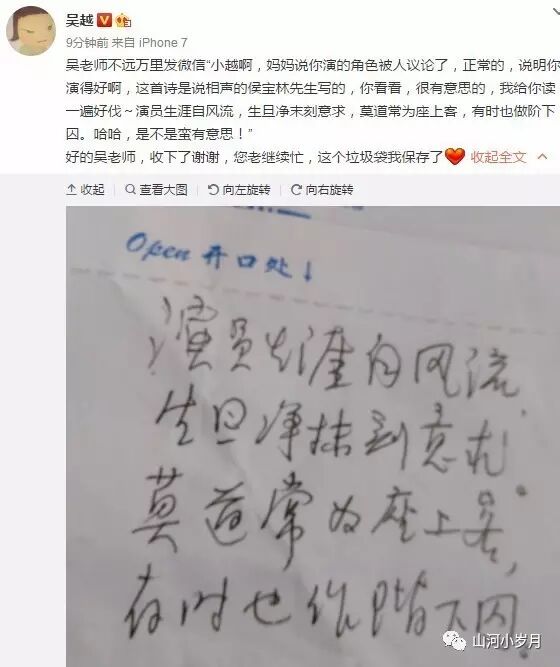 吴越
9分钟前 来自 iPhone 7
吴老师不远万里发微信“小越啊，妈妈说你演的角色被人议论了，正常的，说明你
演得好啊，这首诗是说相声的侯宝林先生写的，你看看，很有意思的，我给你读
一遍好伐～演员生涯自风流，生旦净末刻意求，莫道常为座上客，有时也做阶下
囚。哈哈，是不是蛮有意思！”
好的吴老师，收下了谢谢，您老继续忙，这个垃圾袋我保存了❤ 收起全文
收起 查看大图 向左旋转 向右旋转
Open 开口处↓
演员生涯自风流，
生旦净抹刻意求。
莫道常为座上客，
有时也作阶下囚。
山河小岁月